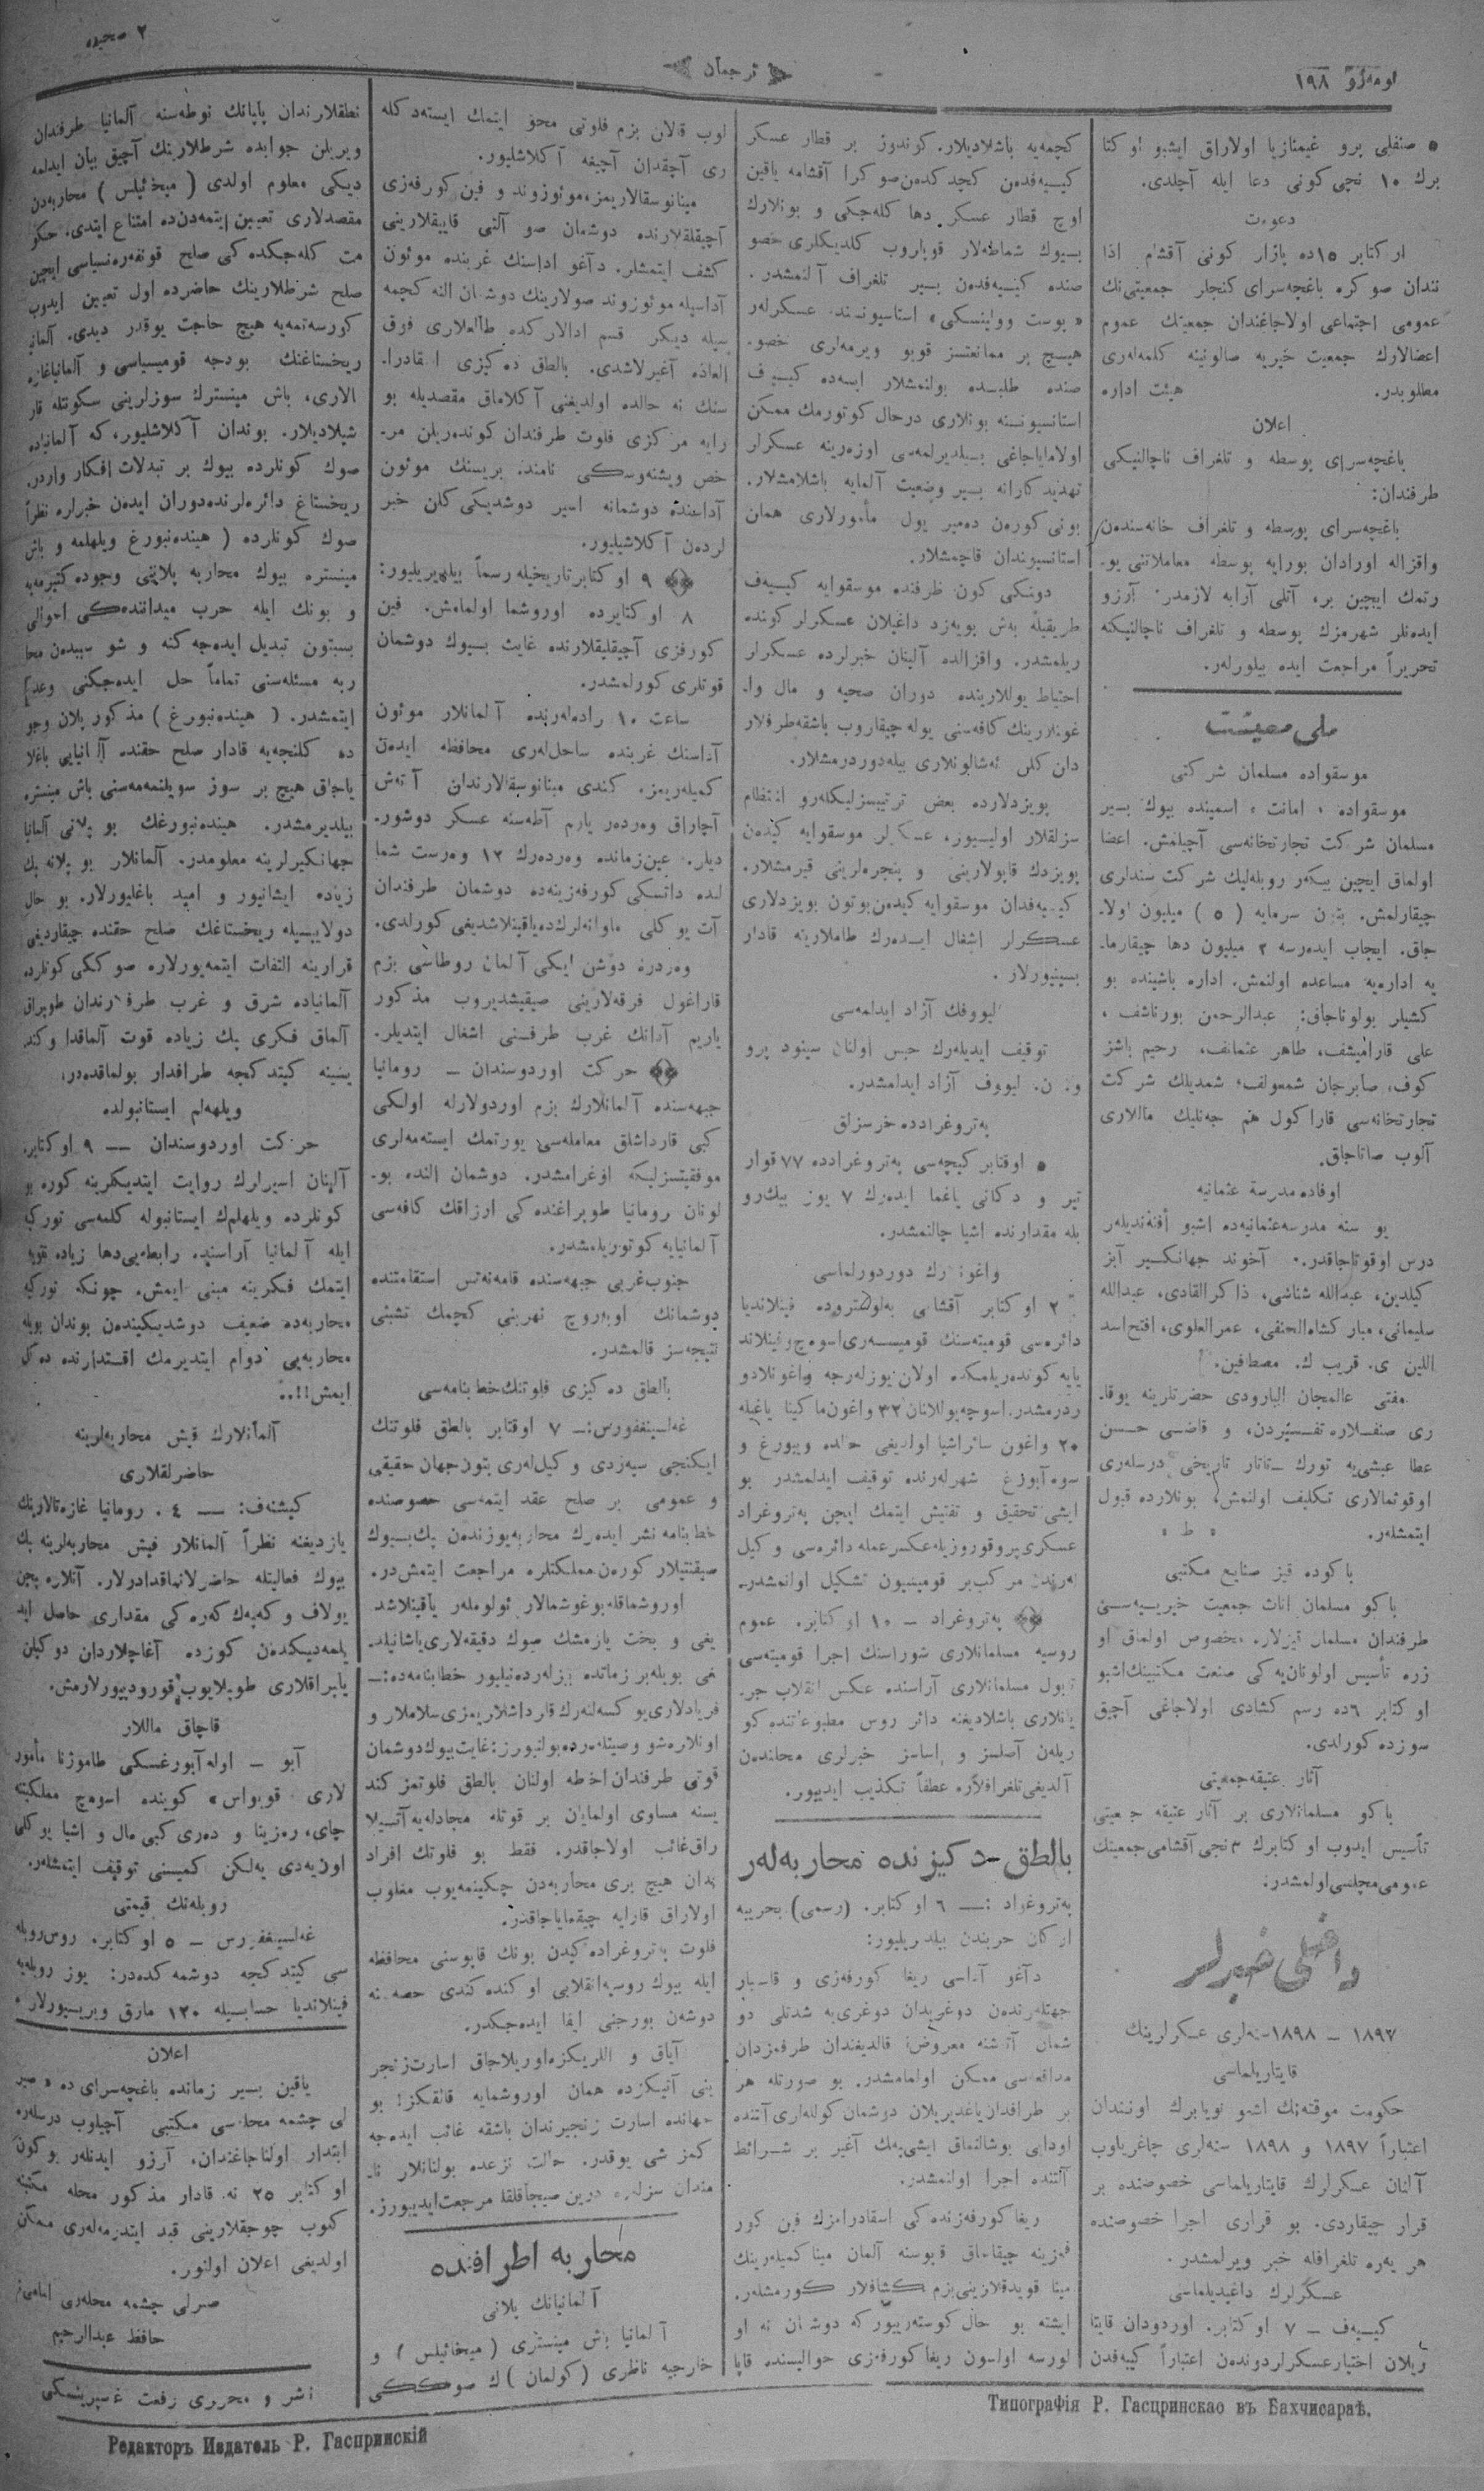 نومرو ١٩٨
ترجمان
٢ صحیفه
صنفلی برو غیمنازیا اولاراق ایشبو اوکتا
برك ١٠ نچی کونی دعا ایله آچلدی.
دعوت
اوکتابر ١٥ده بازار کونی آقشام اذا
ندان صوکره باغچه‌سرای کنجلر جمعیتی‌نك
عمومی اجتماعی اولاجاغندان جمعیتك عموم
اعضالارك جمعیت خیریه صالونینه کلمه‌لری
مطلوبدر. هیئت اداره
اعلان
باغچه‌سرای پوسطه و تلغراف ناچالنیکی
طرفندان:
باغچه‌سرای پوسطه و تلغراف خانه‌سندن
واقزاله اورادان بورایه پوسطه معاملاتنی یو-
رتمك ایچین بر، آتلی آرابه لازمدر. آرزو
ایده‌نلر شهرمزك پوسطه و تلغراف ناچالنیکنه
تحریراً مراجعت ایده بیلورلر.
ملی معیشت
موسقواده مسلمان شرکتی
موسقواده «امانت» اسمینده بیوك بسیر
مسلمان شرکت تجارتخانه‌سی آچیلمش. اعضا
اولماق ایچین بیکه‌ر روبله‌لیك شرکت سندلری
چیقارلمش. بتون سرمایه (٥) میلیون اولا-
جاق. ایجاب ایده‌رسه ٢ میلیون دها چیقارما-
یه اداره‌یه مساعده اولنمش. اداره باشینده بو
کشیلر بولوناجاق: عبدالرحمن بورناشف،
علی قارامیشف، طاهر عثمانف، رحیم باشز
کوف، صابرجان شمعولف، شمدیلك شرکت
تجارتخانه‌سی قاراکول هم جه‌نلیك ماللاری
آلوب صاتاجاق.
اوفاده مدرسة عثمانیه
بو سنه مدرسه عثمانیه‌ده اشبو أفندیلەر
درس اوقوتاجاقدر. آخوند جهانکیر آبز
کیلدین، عبدالله شناسی، ذاکر القادی، عبدالله
سلیمانی، مبارکشاه الحنفی، عمر العلوی، افتح اسد
اللین ی. قریب ك. مصطافین.
مفتی عالمجان البارودی حضرتلرینه یوقا-
ری صنفلاره تفسیردن، و قاضی حسن
عطا عبشی‌یه تورك - تاتار تاریخی درسلری
اوقوتمالاری تکلیف اولنمش، بونلارده قبول
ایتمشلەر. «ط»
باکوده قیز صنایع مکتبی
باکو مسلمان اناث جمعیت خیریه‌سی
طرفندان مسلمان قیزلار. مخصوص اولماق او
زره تأسیس اولونان‌یه‌کی صنعت مکتبینك اشبو
اوکتابر ٦ده رسم کشادی اولاجاغی آچیق
سوزده کورلدی.
آثار عتیقه جمعیتی
باکو مسلمانلاری بر آثار عتیقه جمعیتی
تأسیس ایدوب اوکتابرك ٣ نجی آقشامی جمعیتك
عمومی مجلسی اولمشدر.
داخلی خبرلر
١٨٩٧ - ١٨٩٨ سنه‌لری عسکرلرینك
قایتاریلماسی
حکومت موقته‌نك اشبو نویابرك اونندان
اعتباراً ١٨٩٧ و ١٨٩٨ سنه‌لری چاغریلوب
آلنان عسکرلرك قایتاریلماسی خصوصنده بر
قرار چیقاردی. بو قراری اجرا خصوصنده
هر یه‌ره تلغرافله خبر ویرلمشدر.
عسکرلرك داغیدیلماسی
کییه‌ف - ٧ اوکتابر. اوردودان قایتا
ریلان اختیار عسکرلر دونده‌ن اعتباراً کییه‌فدن
کچمه‌یه باشلادیلار. کوندوز بر قطار عسکر
کییه‌فدەن کچدکدەن صوکرا آقشامه یاقین
اوچ قطار عسکر دها کله‌جکی و بونلارك
بیوك شماطه‌لار قوپاروب کلدیکلری خصو
صنده کییه‌فدەن بسیر تلغراف آلنمشدر.
«پوست وولینسکی» استاسیونندە عسکرلەر
هیچ بر ممانعتسز قویو ویرمه‌لری خصو-
صنده طلبده بولنمشلار ایسه‌ده کییف
استانسیونینه بونلاری درحال کوتورمك ممکن
اولامایاجاغی بیلدیرلمه‌سی اوزه‌رینه عسکرلر
تهدیدکارانه بسیر وضعیت آلمایه باشلامشلار.
بونی کورەن دەمیر یول مأمورلاری همان
استانسیوندان قاچمشلار.
دونکی کون ظرفنده موسقوایه کییه‌ف
طریقیله به‌ش یویه‌زد داغیلان عسکرلر کونده
ریلمشدر. واقزالده آلینان خبرلرده عسکرلر
احتیاط یوللارینده دوران صحیه و مال وا-
غونلارینك کافه‌سنی یوله چیقاروب باشقه طرفلار
دان کلن ئه‌شالونلاری بیله دوردرمشلار.
بویزدلارده بعض ترتیبسزلیکلەر و انتظام
سزلقلار اولیسیور، عسکرلر موسقوایه کیدەن
بویزدك قاپولارینی و پنجره‌لرینی قیرمشلار.
کییه‌فدان موسقوایه کیدەن بوتون بویزدلاری
عسکرلر اشغال ایدەرك طاملارینه قادار
بینیورلار.
لیووفك آزاد ایدلمه‌سی
توقیف ایدیلەرك حبس اولنان سینود پرو
و. ن. لیووف آزاد ایدلمشدر.
پەتروغرادده خرسزلق
٥ اوقتابر کیچه‌سی پەتروغرادده ٧٧ قوار
تیر و دکانی یاغما ایدەرك ٧ یوز بیك رو
بله مقدارنده اشیا چالنمشدر.
واغونلارك دوردورلماسی
٢ اوکتابر آقشامی به‌لوئستروده فینلاندیا
دائره‌سی قومیته‌سنك قومیسەری اسوەچ و فینلاند
یایه کوندەریلمکده اولان یوزلەرجه واغونلادو
ردرمشدر. اسوچه یوللانان ٣٢ واغون ماکینا یاغیله
٢٠ واغون سائر اشیا اولدیغی حالده ویبورغ و
سوه‌آبورغ شهرلەرنده توقیف ایدلمشدر بو
ایشی تحقیق و تفتیش ایتمك ایچن پەتروغراد
عسکری پروقوروریله عسکر عمله دائره‌سی وکیل
لەرندن مرکب بر قومیسیون تشکیل اولنمشدر.
پەتروغراد - ١٠ اوکتابر. عموم
روسیه مسلمانلاری شوراسنك اجرا قومیته‌سی
قبول مسلمانلاری آراسنده عکس انقلاب جر-
یانلاری باشلادیغنه دائر روس مطبوعاتنده کو
ریلەن آصلسز و اساسز خبرلری محلندەن
آلدیغی تلغرافلاره عطفاً تکذیب ایدییور.
بالطق دکیزنده محاربه‌لەر
پەتروغراد: — ٦ اوکتابر. (رسمی) بحریه
ارکان حربندن بیلدریلیور:
داغو آداسی ریغا کورفەزی و قاسبار
جهتلەرندەن دوغریدان دوغری‌یه شدتلی دو
شمان آتشنه معروض قالدیغندان طرفمزدان
مدافعه‌سی ممکن اولمامشدر. بو صورتله هر
بر طرافدان یاغدیریلان دوشمان کولله‌لری آلتنده
اودایی بوشالتماق ایشی‌پەك آغیر بر شرائط
آلتنده اجرا اولنمشدر.
ریغا کورفەزنده‌کی اسقادرامزك فین کور
فەزینه چیقاماق قاپوسنه آلمان مینا کمیلەرینك
مینا قویدقلارینی بزم کشافلار کورمشلەر.
ایشته بو حال کوسته‌رییورکه دوشمان نه او
لورسه اولسون ریغا کورفەزی حوالیسنده قاپا
لوب قالان بزم فلوتی محو ایتمك ایستەدکله
ری آچقدان آچیغه آکلاشلیور.
مینانوسقالاریمز، موئنوزوند و فین کورفەزی
آچیقلقلارنده دوشمان صو آلتی قاییقلارینی
کشف ایتمشلر. داغو آداسنك غربنده موئون
آداسیله موئنوزوند صولارینك دوشمان النه کچمه
سیله دیکر قسم ادالارکده طالعلاری فوق
العاده آغیرلاشدی. بالطق دەکیزی اسقادرا-
سنك نه حالده اولدیغنی آکلاماق مقصدیله بو
رایه مرکزی فلوت طرفندان کوندەریلن مر-
خص ویشنه‌وسکی نامنده بریسنك موئون
آداسنده دوشمانه اسیر دوشدیکی کلن خبر
لردەن آکلاشیلیور.
٩ اوکتابر تاریخیله رسماً بیلدیریلیور:
٨ اوکتابرده اوروشما اولمامش. فین
کورفزی آچیقلیقلارنده غایت بیوك دوشمان
قوتلری کورلمشدر.
ساعت ١٠ رادەلەرنده آلمانلار موئون
آداسنك غربنده ساحل‌لەری محافظه ایدەن
کمیلەریمز، کندی مینانوسقالارندان آتەش
آچاراق وەردەر یارم آطه‌سنه عسکر دوشور-
دیلر. عین زمانده وەردەرك ١٢ وەرست شما
لنده داتسکی کورفەزینه‌ده دوشمان طرفندان
آت یوکلی ماوانه‌لرك‌ده یاقینلاشدیغی کورلدی.
وەردرە دوشن ایکی آلمان روطاسی بزم
قاراغول فرقه‌لارینی صیقیشدیروب مذکور
یاریم آدانك غرب طرفنی اشغال ایتدیلر.
حرکت اوردوسندان - رومانیا
جبهه‌سنده آلمانلارك بزم اوردولارله اولکی
کبی قارداشلق معامله‌سی یورتمك ایسته‌مه‌لری
موفقیتسزلیکه اوغرامشدر. دوشمان النده بو-
لونان رومانیا طوپراغنده‌کی ارزاقك کافه‌سی
آلمانیایه کوتوریلمشدر.
جنوب غربی جبهه‌سنده قامه‌نه‌تس استقامتنده
دوشمانك اوبوروچ نهرینی کچمك تشبثی
نتیجه‌سز قالمشدر.
بالطق دەکیزی فلوتنك خطبنامه‌سی
غەلسینغفورس: - ٧ اوقتابر بالطق فلوتنك
ایکنجی سیەزدی وکیل‌لەری بتون جهان حقیقی
و عمومی بر صلح عقد ایتمه‌سی خصوصنده
خطبنامه نشر ایدەرك محاربه یوزندەن پك بیوك
صیقنتیلار کورەن مملکتلره مراجعت ایتمش‌در.
اوروشماقله بوغوشمالار ئولوملەر یاقینلاشد
یغی و بخت یازمشك صوك دقیقه‌لاری یاشانیلد-
یغی بویله بر زمانده بزلەردەنیلیور خطابنامه‌ده:—
فریادلاری یوکسەلتەرك قارداشلاریمزی سلاملار و
اونلاره شو وصیتلەرده بولنیورز: غایت بیوك دوشمان
قوتی طرفندان احاطه اولنان بالطق فلوتمز کند
یسنه مساوی اولمایان بر قوتله مجادله‌یه آتیلا
راق غائب اولاجاقدر. فقط بو فلوتك افراد
ندان هیچ بری محاربه‌دن چکینمه‌یوب مغلوب
اولاراق قارایه چیقمایاجاقدر.
فلوت پەتروغراده کیدن یونك قاپوسنی محافظه
ایله بیوك روسیه انقلابی اوکنده کندی حصه‌سنه
دوشەن بورجنی ایفا ایده‌جکدر.
آیاق و اللریکزه اوریلاجاق اسارت زنجر
ینی آتیکزده همان اوروشمایه قالقکز! بو
جهانده اسارت زنجیرندان باشقه غائب ایده‌جه
کمز شی یوقدر. حالت نزعده بولنانلار نا-
مندان سزلەره درین صیجاقلقله مرجعت ایدییورز.
محاربه اطرافنده
آلمانیانك پلانی
آلمانیا باش مینستری (میخائیلس) و
خارجیه ناظری (کولمان)ك صوککی
نطقلارندان پاپانك نوطه‌سنه آلمانیا طرفندان
ویریلن جوابده شرطلارینك آچیق بیان ایدلمه
دیکی معلوم اولدی (میخائیلس) محاربه‌دن
مقصدلاری تعیین ایتمه‌دن‌ده امتناع ایتدی. حکو
مت کله‌جکده‌کی صلح قونفەرەنسیاسی ایچین
صلح شرطلارینك حاضرده اول تعیین ایدوب
کورسه‌تمه‌یه هیچ حاجت یوقدر دیدی. آلمانیا
ریخستاغنك بودجه قومیسیاسی و آلمانیا غازه
الاری، باش مینسترك سوزلرینی سکوتله قار
شیلادیلار. بوندان آکلاشلیور، که آلمانیاده
صوك کونلرده بیوك بر تبدلات افکار واردر.
ریخستاغ دائره‌لرنده دوران ایدەن خبرلره نظراً
صوك کونلرده (هینده‌نبورغ ویلهلمه و باش
مینستره بیوك محاربه پلاننی وجوده کتیرمه‌یه
و بونك ایله حرب میداننده‌کی احوالی
بسبتون تبدیل ایده‌جه‌کنه و شو سببدەن محا
ربه مسئله‌سنی تماماً حل ایده‌جکنی وعد
ایتمشدر. (هینده‌نبورغ) مذکور پلان وجو
ده کلنجه‌یه قادار صلح حقنده آلمانیایی باغلا
یاجاق هیچ بر سوز سویلنمه‌مه‌سنی باش مینستره
بیلدیرمشدر. هینده‌نبورغك بو پلانی آلمانیا
جهانکیرلرینه معلومدر. آلمانلار بو پلانه پك
زیاده ایشانیور و امید باغلیورلار. بو حال
دولاییسیله ریخستاغك صلح حقنده چیقاردیغی
قرارینه التفات ایتمه‌یورلار. صوککی کونلرده
آلمانیاده شرق و غرب طرفلارندان طوپراق
آلماق فکری پك زیاده قوت آلماقدا و کند
یسینه کیتدکجه طرافدار بولماقده‌در.
ویلهلم ایستانبولده
حرکت اوردوسندان — ٩ اوکتابر.
آلینان اسیرلرك روایت ایتدیکلرینه کوره بو
کونلرده ویلهلمك ایستانبوله کلمه‌سی تورکیه
ایله آلمانیا آراسنده رابطه‌یی دها زیاده قویه
ایتمك فکرینه مبنی ایمش. چونکه تورکیه
محاربه‌ده ضعیف دوشدیکیندەن بوندان بویله
محاربه‌یی دوام ایتدیرمك اقتدارنده ده‌کل
ایمش!!..
آلمانلارك قیش محاربه‌لرینه
حاضرلقلاری
کیشنه‌ف: — ٤. رومانیا غازه‌تالارینك
یازدیغنه نظراً آلمانلار قیش محاربه‌لرینه پك
بیوك فعالیتله حاضرلانماقدادرلار. آتلاره ایچن
یولاف و کەپەك کەرەکی مقداری حاصل ایده
یلمه‌دیکندەن کوزده آغاچلاردان دوکیلن
یاپراقلاری طوپلایوب قورودییورلارمش.
قاچاق ماللار
آبو - اوله‌آبورغسکی طاموژنا مأمور
لاری «قوبواس» کوینده اسوەچ مملکتینه
چای، رەزینا و دەری کبی مال و اشیا یوکلی
اون یه‌دی یەلکن کمیسنی توقیف ایتمشلەر.
روبله‌نك قیمتی
غەلسینغفورس - ٥ اوکتابر. روس روبله
سی کیتدکجه دوشمه‌کده‌در: یوز روبله‌یه
فینلاندیا حسابیله ١٣٠ مارق ویریسیورلار.
اعلان
یاقین بسیر زمانده باغچه‌سرای‌ده «صیر
لی چشمه محله‌سی مکتبی آچیلوب درسلەره
ابتدار اولناجاغندان. آرزو ایدنلەر بو کون
اوکتابر ٢٥ نه قادار مذکور محله مکتبنه
کلوب چوجقلارینی قید ایتدرمه‌لری ممکن
اولدیغی اعلان اولنور.
صرلی چشمه محله‌سی امامی
حافظ عبدالرحیم
ناشر و محرری رفعت غسپرینسکی
Типографія Р. Гаспринскаго въ Бахчисараѣ.
Редакторъ Издатель Р. Гаспринскій